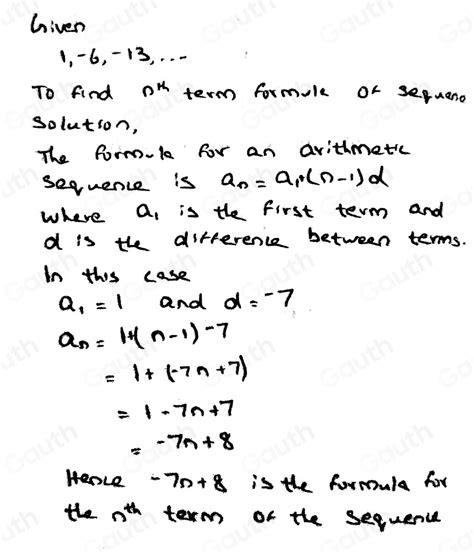 Given
1, -6, -13, ...
To find nth term formula of sequence
Solution,
The formula for an arithmetic
sequence is an = a1+(n-1)d
where a1 is the first term and
d is the difference between terms.
In this case
a1 = 1 and d = -7
an = 1+(n-1)-7
= 1 + (-7n+7)
= 1 - 7n+7
= -7n+8
Hence -7n+8 is the formula for
the nth term of the sequence